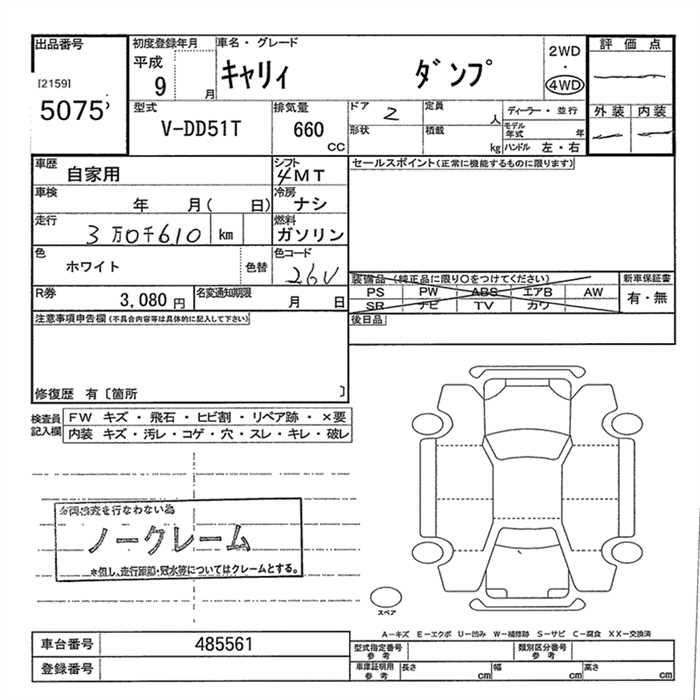 出品番号
[2159]
5075
初度登録年月
平成
9 月
車名・グレード
キャリィ ダンプ
2WD
・
4WD
評価点
外装 内装
型式
V-DD51T
排気量
660
CC
ドア 2
形状
定員 人
積載 kg
ディーラー・並行
モデル年式 年
ハンドル 左・右
車歴 自家用
シフト
4MT
車検 年 月( 日)
冷房
ナシ
走行
3万0千610 km
燃料
ガソリン
色
ホワイト 色替
色コード
26U
R券 3,080円
名変通知期限 月 日
セールスポイント(正常に機能するものに限ります)
装備品 (純正品に限り○をつけてください)
PS PW ABS エアB AW
SR ナビ TV カワ
新車保証書
有・無
後日品
注意事項申告欄(不具合内容等は具体的に記入して下さい)
修復歴 有〔箇所 〕
検査員記入欄
FW キズ・飛石・ヒビ割・リペア跡・×要
内装 キズ・汚レ・コゲ・穴・スレ・キレ・破レ
車両検査を行なわない為
ノークレーム
*但し、走行距離・冠水等についてはクレームとする。
スペア
A−キズ E−エクボ U−凹み W−補修跡 S−サビ C−腐食 XX−交換済
車台番号 485561
登録番号
型式指定番号
参考
類別区分番号
参考
車庫証明用
参考
長さ cm 幅 cm 高さ cm